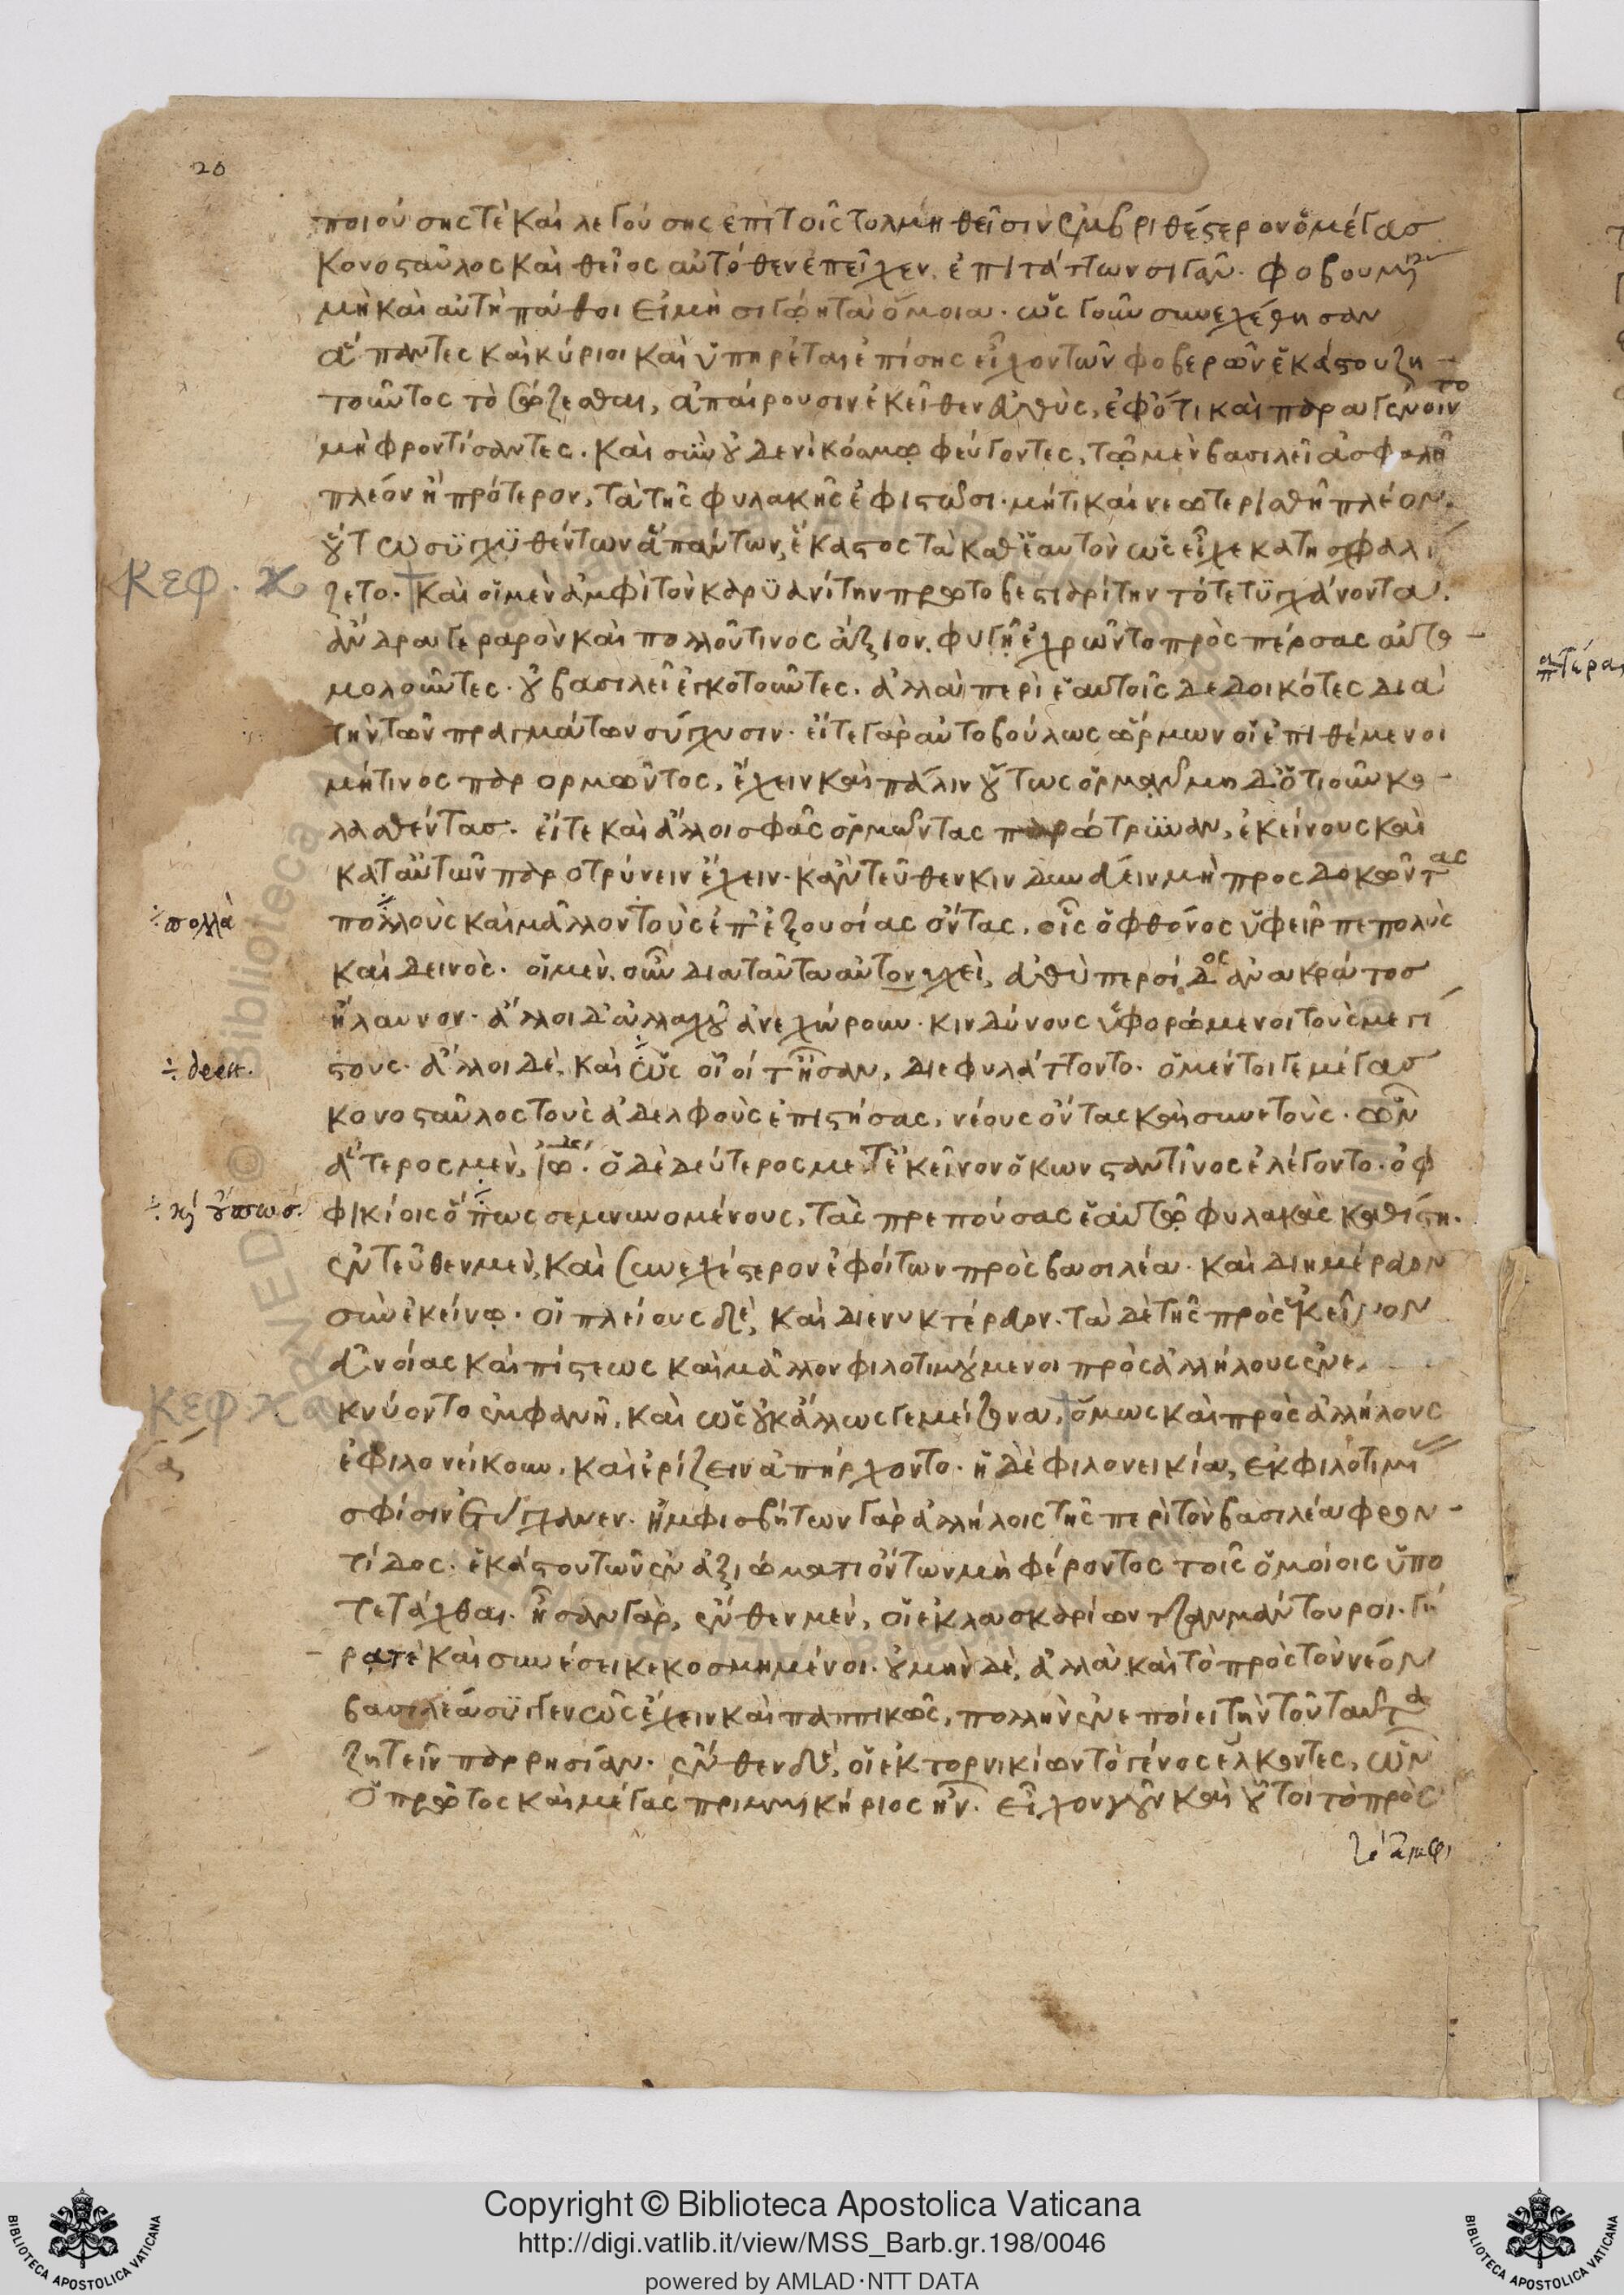 20
ποιούσης τὲ καὶ λεγούσης ἐπὶ τοῖς τολμηθεῖσιν ἐμβριθέστερον ὁ μέγας
κονοσταῦλος καὶ θεῖος αὐτόθεν ἐπεῖχεν, ἐπιτάττων σιγᾶν. φοβουμένην
μὴ καὶ αὐτὴ πάθοι εἰ μὴ σιγῴη τὰ ὅμοια. ὡς γοῦν συνεχέθησαν
ἅπαντες καὶ κύριοι καὶ ὑπηρέται ἐπίσης εἶχον τῶν φοβερῶν ἑκάστου ζη-
τοῦντος τὸ σώζεσθαι, ἀπαίρουσιν ἐκεῖθεν εὐθὺς, ἐφότι καὶ παραγένοιντο
μὴ φροντίσαντες. καὶ σὺν οὐδενὶ κόσμῳ φεύγοντες, τῷ μὲν βασιλεῖ ἀσφαλῆ
πλέον ἢ πρότερον, τὰ τῆς φυλακῆς ἐφιστῶσι. μήτι καὶ νεωτερισθῇ πλέον.
οὕτω συγχυθέντων ἁπάντων, ἕκαστος τὰ καθ' ἑαυτὸν ὡς εἶχε κατησφαλί
ΚΕΦ. κ
ζετο. καὶ οἱ μὲν ἀμφὶ τὸν καρυανίτην πρωτοβεστιαρίτην τότε τυγχάνοντα.
ἄνδρα γεραρὸν καὶ πολλοῦ τινος ἄξιον. φυγῇ ἐχρῶντο πρὸς πέρσας αὐτο-
μολοῦντες. οὐ βασιλεῖ ἐγκοτοῦντες. ἀλλὰ περὶ ἑαυτοῖς δεδοικότες διὰ
τὴν τῶν πραγμάτων σύγχυσιν. εἴτε γὰρ αὐτοβούλως ὥρμων οἱ ἐπιθέμενοι
μήτινος παρορμῶντος, ἔχειν καὶ πάλιν οὕτως ὁρμᾶν μηδ' ὁτιοῦν κο-
λασθέντας. εἴτε καὶ ἄλλοι σφᾶς ὁρμῶντας παρώτρυναν, ἐκείνους καὶ
κατ' αὐτῶν παροτρύνειν ἔχειν. κἀντεῦθεν κινδυνεύειν μὴ προσδοκῶντας
÷ πολλὰ
πολλοὺς καὶ μᾶλλον τοὺς ἐπ' ἐξουσίας ὄντας, οἷς ὁ φθόνος ὑφεῖρπε πολὺς
καὶ δεινὸς. οἱ μὲν οὖν διαταῦτα αὐτονυχεὶ, εὐθὺ περσίδος ἀνακράτος
ἤλαυνον. ἄλλοι δ' ἀλλαχοῦ ἀνεχώρουν. κινδύνους ὑφορώμενοι τοὺς μεγί
÷ deest.
στους. ἄλλοι δὲ, καὶ ὡς οἷοί τ' ἦσαν, διεφυλάττοντο. ὁ μέντοιγε μέγας
κονοσταῦλος τοὺς ἀδελφοὺς ἐπιστήσας, νέους ὄντας καὶ συνετοὺς. ὧν
ἅτερος μὲν, ἰω. ὁ δὲ δεύτερος μετ' ἐκεῖνον ὁ κωνσταντῖνος ἐλέγοντο. ὀφ
φικίοις ὅπως σεμνυνομένους, τὰς πρεπούσας ἑαυτῷ φυλακὰς καθίστη.
ἐντεῦθεν μὲν, καὶ συνεχέστερον ἐφοίτων πρὸς βασιλέα. καὶ διημέρευον
σὺν ἐκείνῳ. οἱ πλείους δὲ, καὶ διενυκτέρευον. τὰ δὲ τῆς πρὸς ἐκεῖνον
εὐνοίας καὶ πίστεως καὶ μᾶλλον φιλοτιμούμενοι πρὸς ἀλλήλους ἐνε
κνύοντο ἐμφανῆ. καὶ ὡς οὐκ ἄλλως γε μείζονα, ὅμως καὶ πρὸς ἀλλήλους
ΚΕΦ κ
α
ἐφιλονείκουν. καὶ ἐρίζειν ἀπήρχοντο. ἡ δὲ φιλονεικία, ἐκ φιλοτιμί
σφίσιν ἐτύγχανεν. ἠμφισβήτουν γὰρ ἀλλήλοις τῆς περὶ τὸν βασιλέα φρον-
τίδος. ἑκάστου τῶν ἐν ἀξιώματι ὄντων μὴ φέροντος τοῖς ὁμοίοις ὑπο
τετάχθαι. ἦσαν γὰρ, ἔνθεν μὲν, οἱ ἐκ λασκαρίων τζαμάντουροι. γή
ρατὲ καὶ συνέσει κεκοσμημένοι. οὐ μὴν δὲ, ἀλλὰ καὶ τὸ πρὸς τὸν νέον
βασιλέα συγγενῶς ἔχειν καὶ παππικῶς, πολλὴν ἐνεποίει τὴν τοῦ ταῦτα
ζητεῖν παρρησίαν. ἔνθεν δὲ, οἱ ἐκ τορνικίων τὸ γένος ἕλκοντες, ὧν
ὁ πρῶτος καὶ μέγας πριμμικήριος ἦν. εἶχον γοῦν καὶ οὗτοι τὸ πρὸς
Copyright © Biblioteca Apostolica Vaticana
http://digi.vatlib.it/view/MSS_Barb.gr.198/0046
powered by AMLAD·NTT DATA
BIBLIOTECA APOSTOLICA VATICANA
BIBLIOTECA APOSTOLICA VATICANA